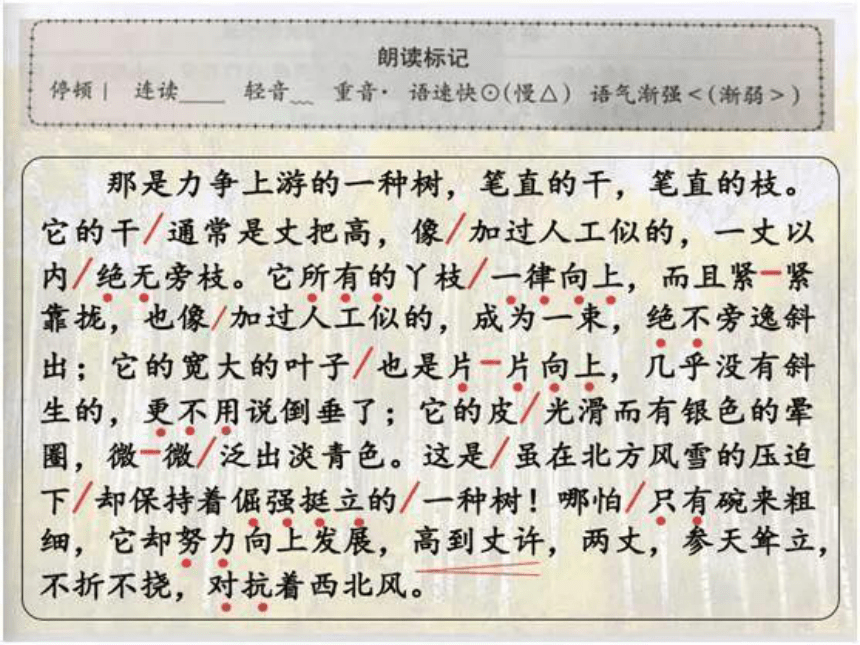 朗读标记
停顿| 连读____ 轻音﹏ 重音· 语速快⊙(慢△) 语气渐强<(渐弱>)
那是力争上游的一种树，笔直的干，笔直的枝。
它的干/通常是丈把高，像/加过人工似的，一丈以
内/绝无旁枝。它所有的丫枝/一律向上，而且紧-紧
靠拢，也像/加过人工似的，成为一束，绝不旁逸斜
出；它的宽大的叶子/也是片-片向上，几乎没有斜
生的，更不用说倒垂了；它的皮/光滑而有银色的晕
圈，微-微/泛出淡青色。这是/虽在北方风雪的压迫
下/却保持着倔强挺立的/一种树！哪怕/只有碗来粗
细，它却努力向上发展，高到丈许，两丈，参天耸立，
不折不挠，对抗着西北风。